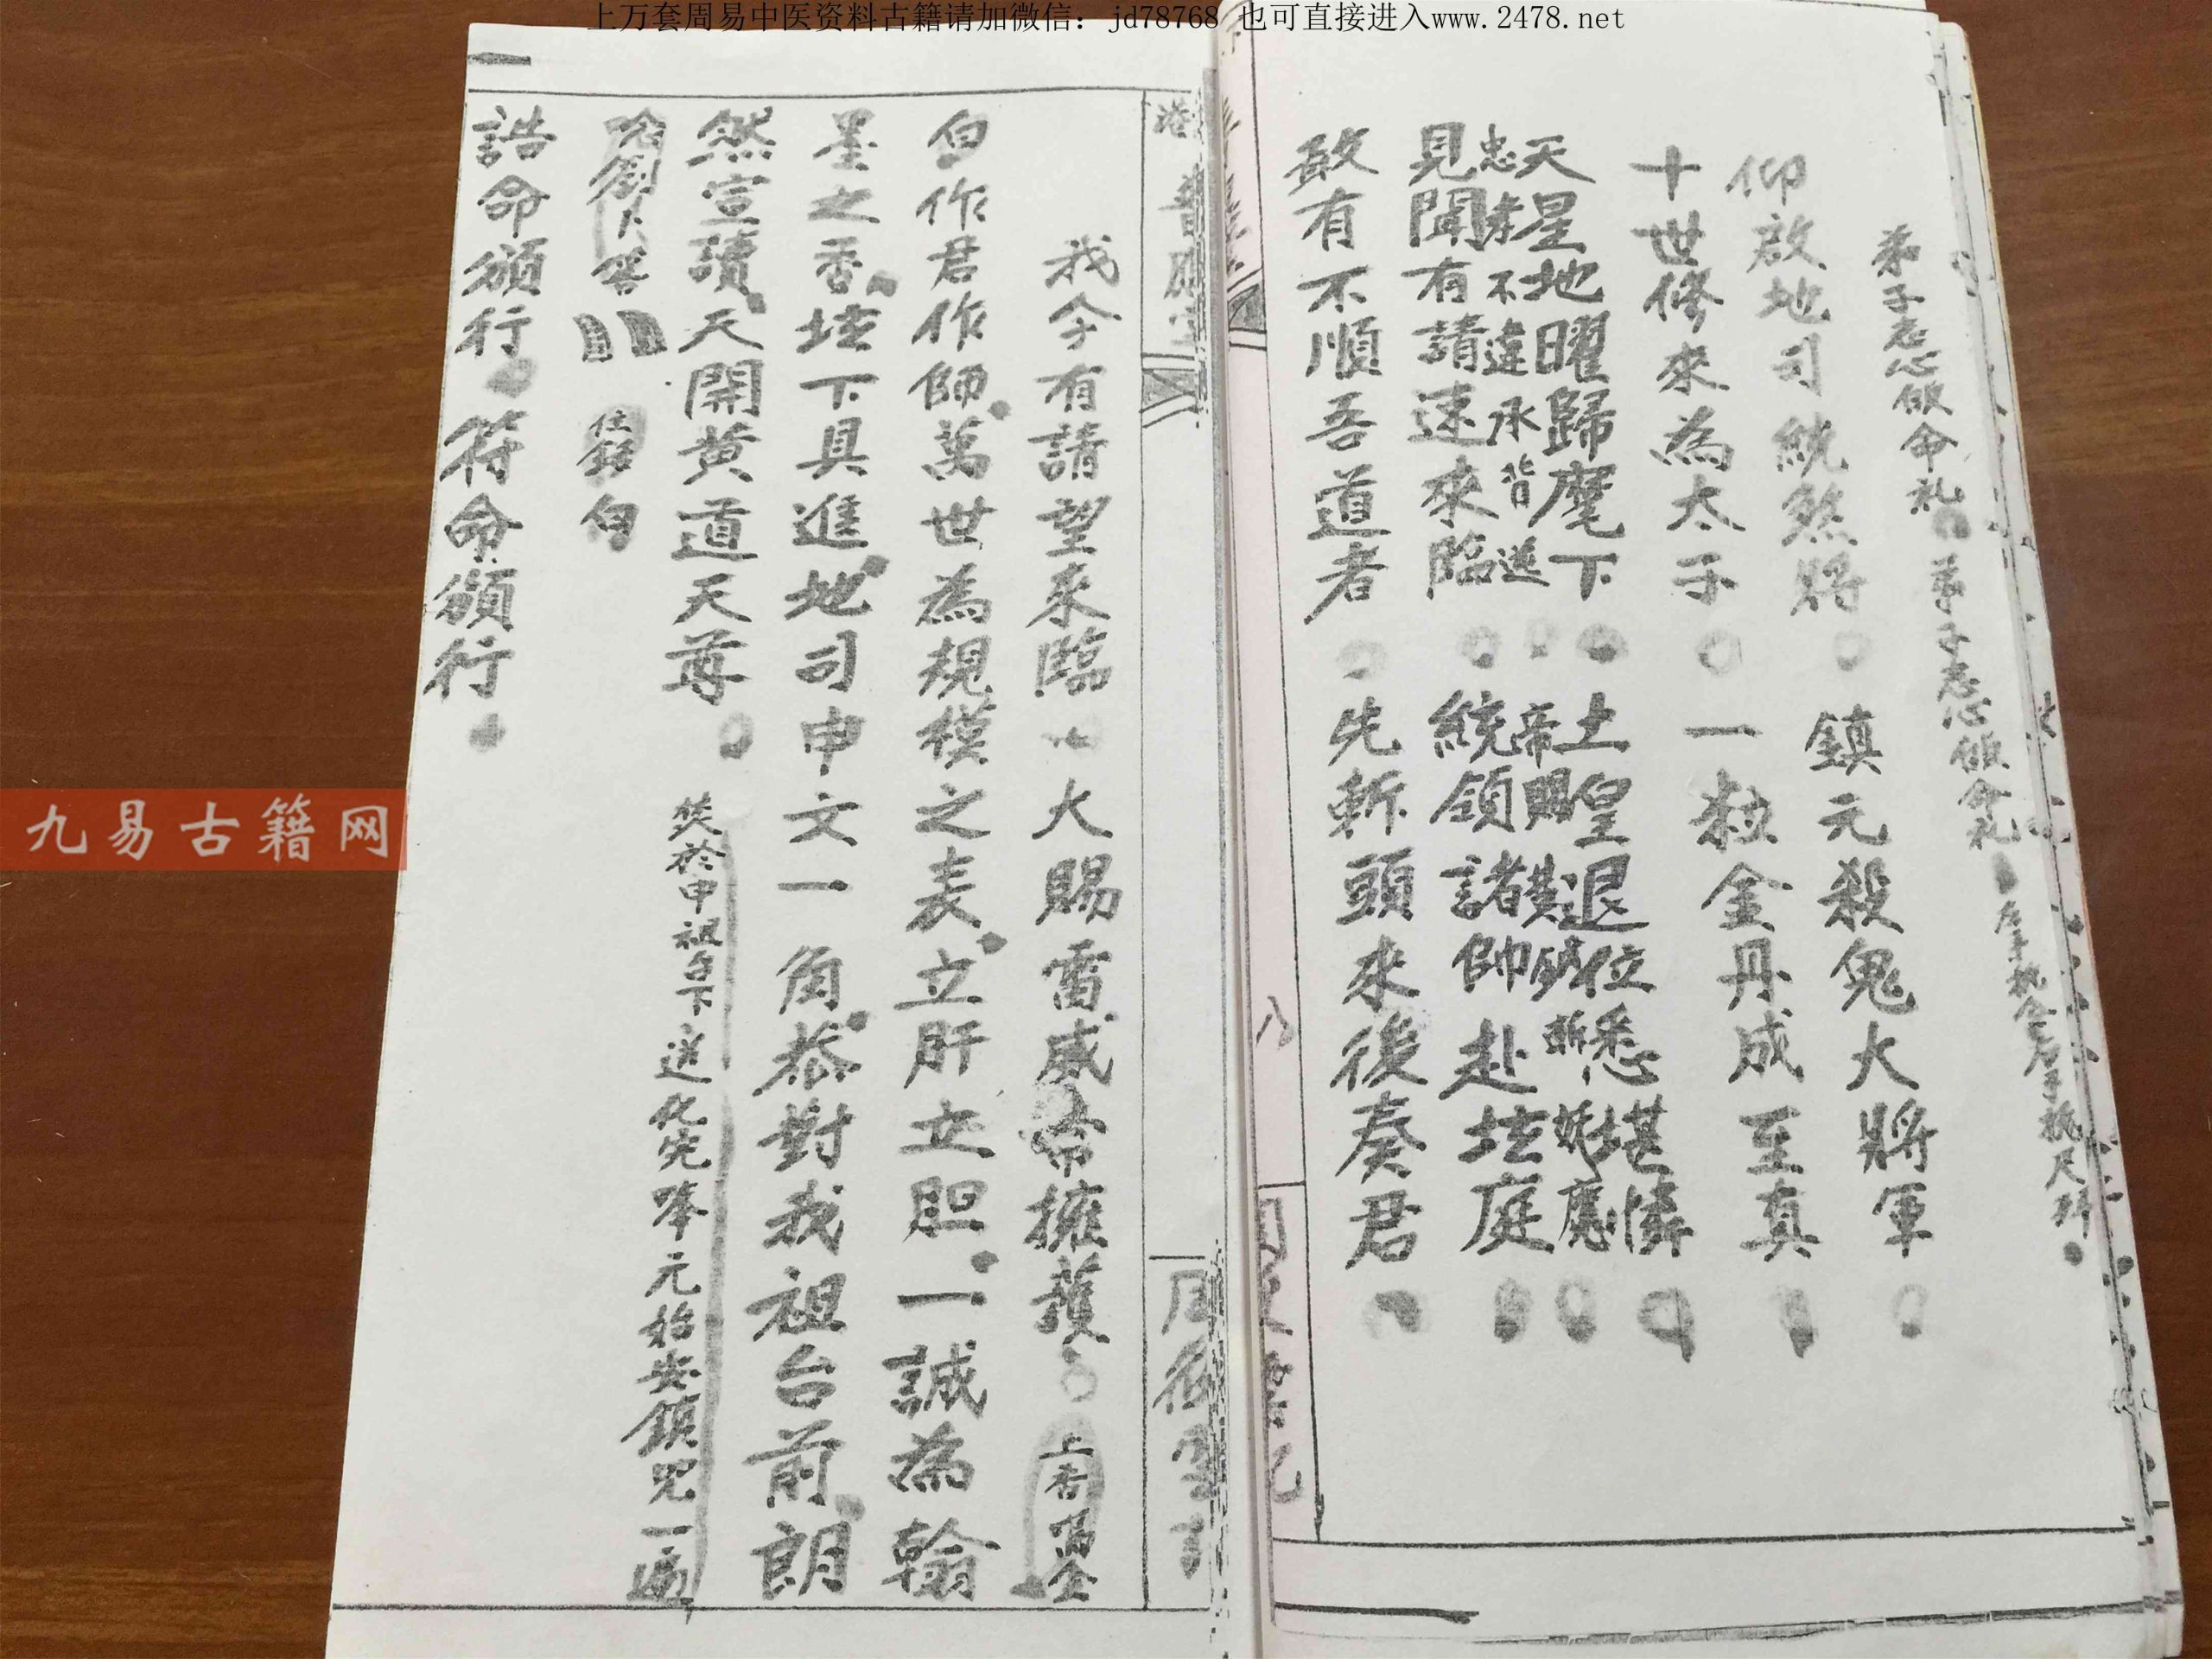 上万套周易中医资料古籍请加微信：jd78768 也可直接进入www.2478.net
弟子志心皈命礼 弟子志心皈命礼
仰啟地司統煞將 鎮元殺鬼大將軍
十世修來為太子 一粒金丹成至真
天星地曜歸麾下 土皇退位悉堪憐
忠孝不違承背送 帝賜黃鉞斬妖魔
見聞有請速來臨 統領諸帥赴坛庭
敢有不順吾道者 先斬頭來後奏君
我今有請望來臨 大賜雷威常擁護 上香
白 作君作師萬世為規模之表立肝立胆一誠為翰
墨之香坛下具進地司申文一角恭對我祖台前朗
然宣讀天開黄道天尊 焚於申祖台下送化完奉元始安鎮咒一遍
白
誥命頒行 符命頒行
九易古籍网